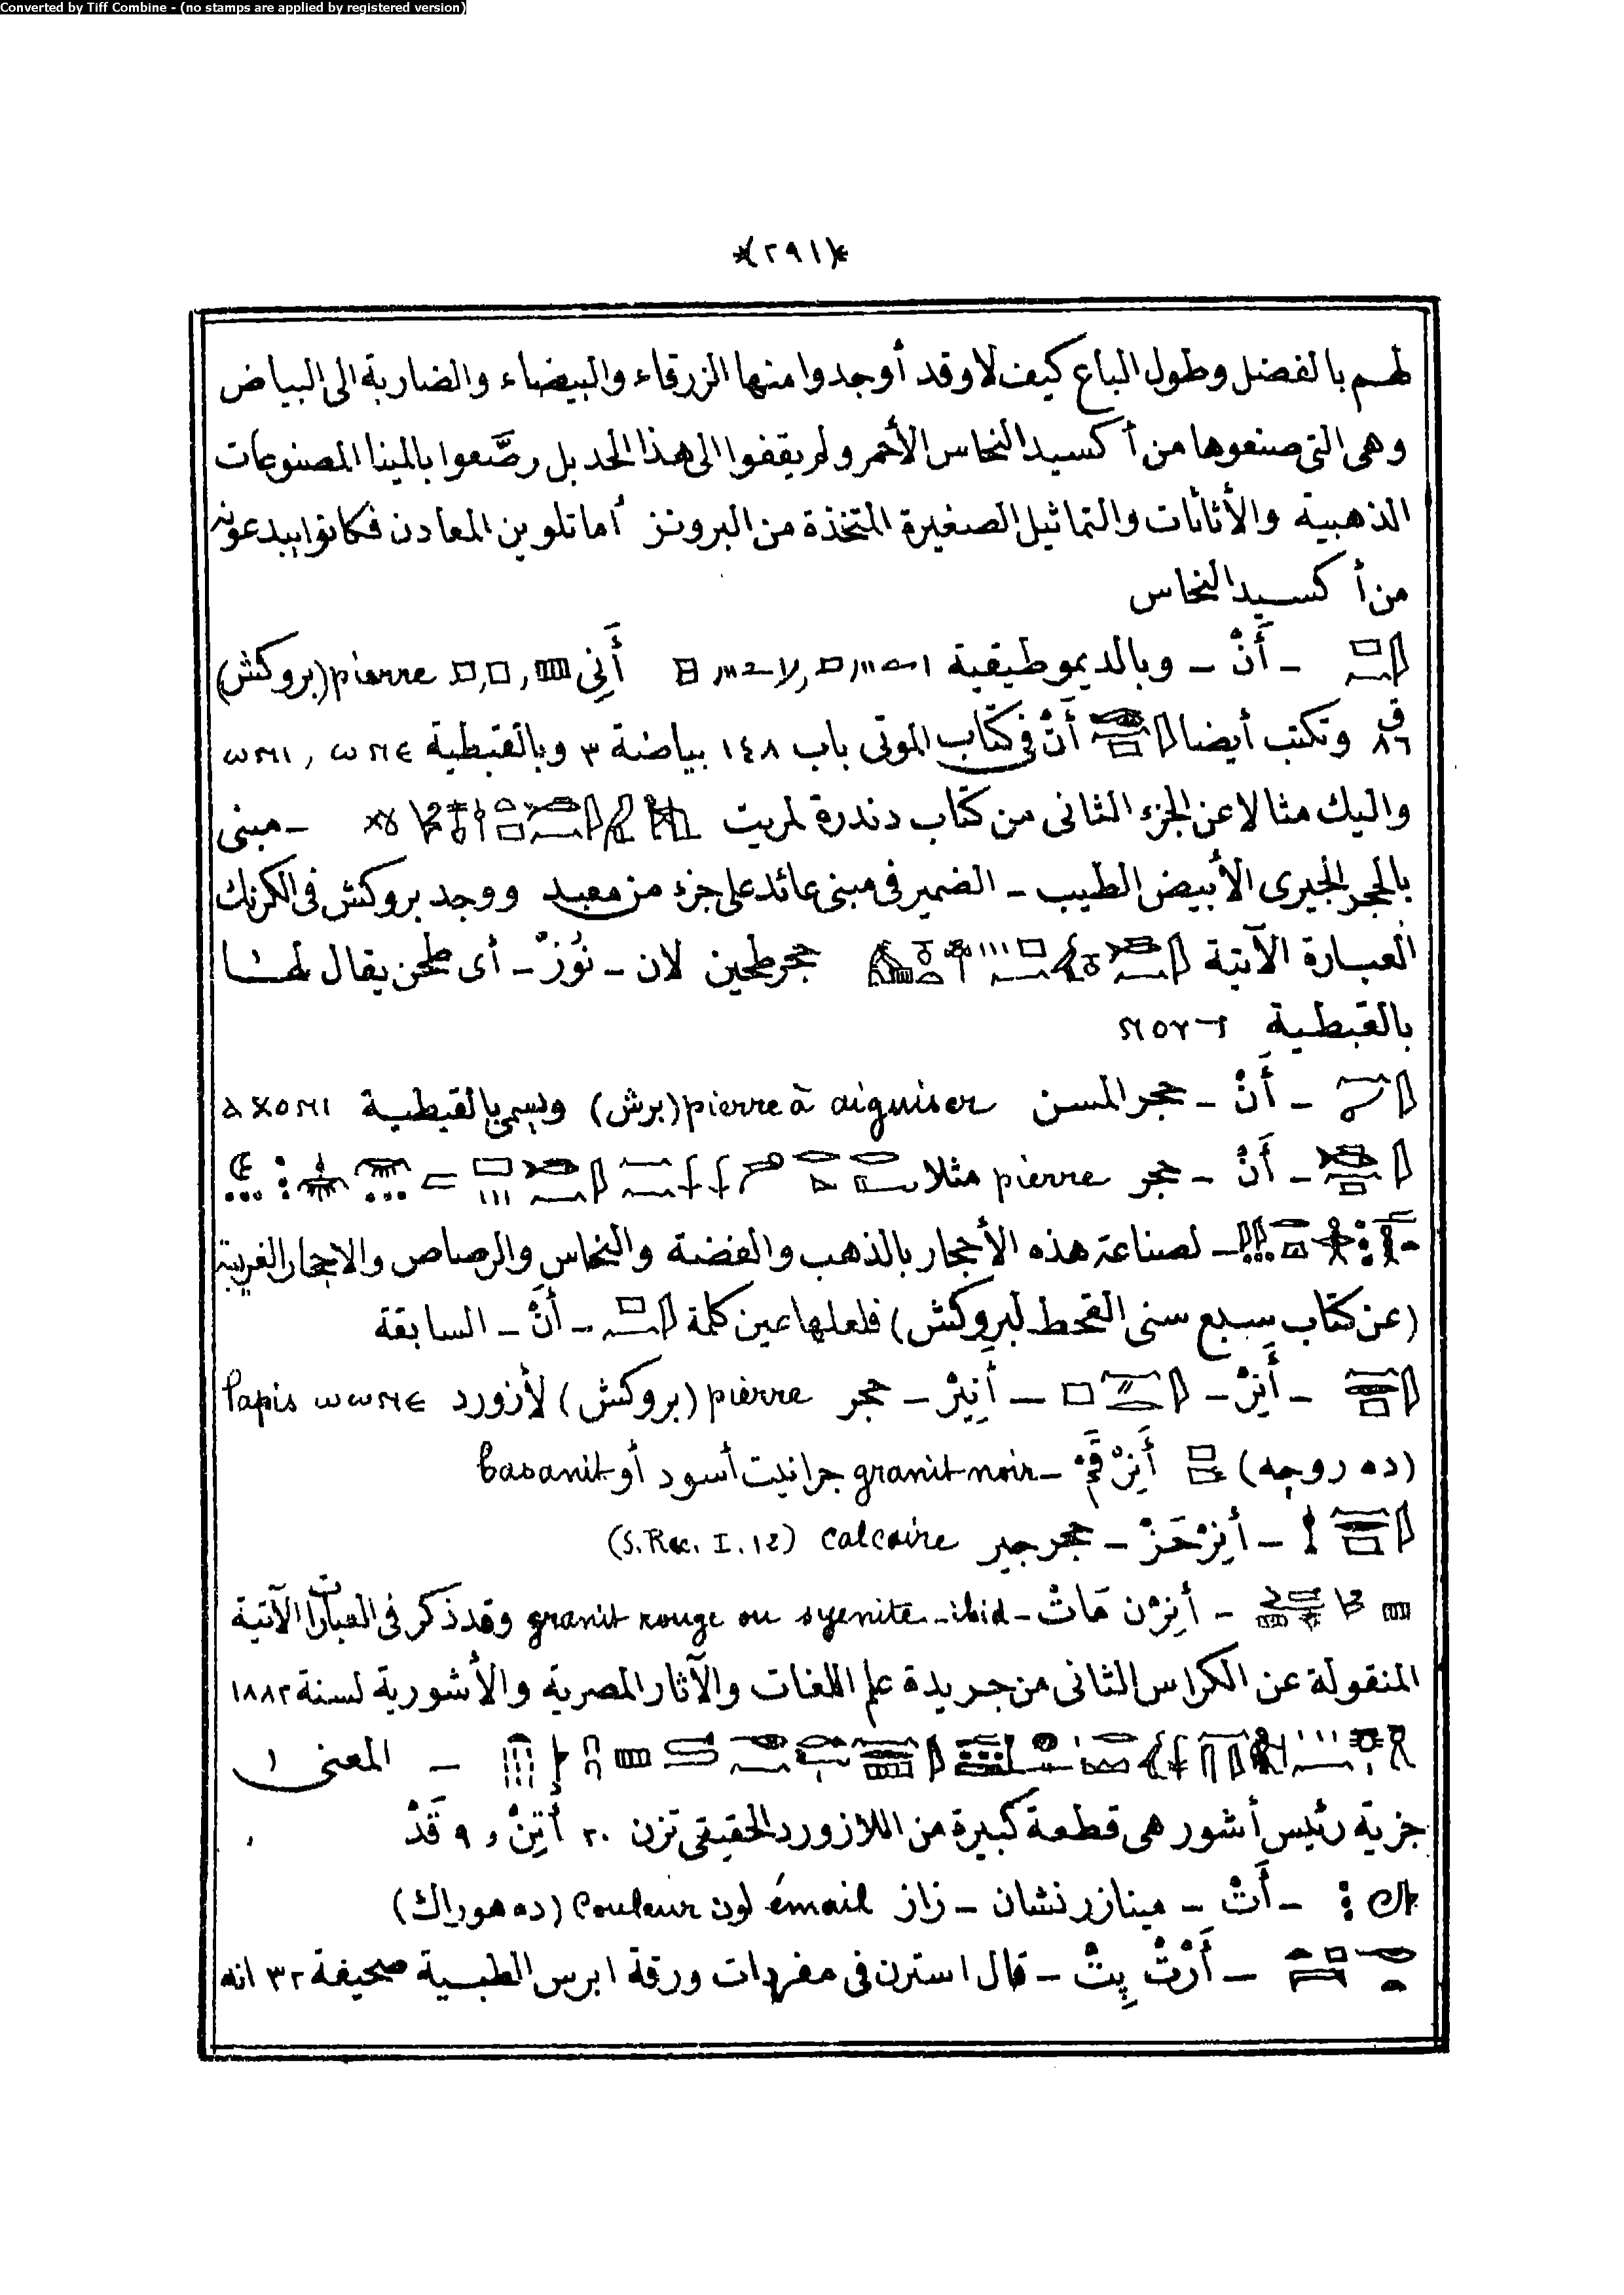 Converted by Tiff Combine - (no stamps are applied by registered version)
*(٢٩١)*
لهم بالفضل وطول الباع كيف لا وقد أوجدوا منها الزرقاء والبيضاء والضاربة الى البياض
وهى التى صنعوها من أكسيد النحاس الأحمر ولم يقفوا الى هذا الحد بل رصَّعوا بالمينا المصنوعات
الذهبية والأثاثات والتماثيل الصغيرة المتخذة من البرونز أما تلوين المعادن فكانوا يبدعونه
من أكسيد النحاس
ـ أَنْ ـ وبالديموطيقية أَنِى pierre (بروكش)
ق ٨٦ وتكتب أيضا أَنْ فى كتاب الموتى باب ١٤٨ بياضنة ٣ وبالقبطية ⲱⲛⲓ, ⲱⲛⲉ
واليك مثالا عن الجزء الثانى من كتاب دندرة لمريت ـ مبنى
بالحجر الجيرى الأبيض الطيب ـ الضمير فى مبنى عائد على جزء من معبد ووجد بروكش فى الكرنك
العبارة الآتية حجر طحين لان ـ نُوزْ ـ أى طحن يقال لها
بالقبطية ⲛⲟⲩⲧ
ـ أَنْ ـ حجر المسن pierre à aiguiser (برش) ويسمى بالقبطية ⲁⲭⲟⲛⲓ
ـ أَنْ ـ حجر pierre مثلا
ـ لصناعة هذه الأحجار بالذهب والفضة والنحاس والرصاص والاحجار الغريبة
(عن كتاب سبع سنى القحط لبروكش) فلعلها عين كلمة ـ أَنْ ـ السابقة
ـ أَنِرْ ـ ـ أَنِيرْ ـ حجر pierre (بروكش) لأزورد ⲱⲱⲛⲉ Lapis
(ده روجه) أَنِرْ قَمْ ـ granit noir جرانيت أسود أو basanit
ـ أَنِرْ حَزْ ـ حجر جير calcaire (S. Rec. I. 12)
ـ أَنِرْن مَاتْ ـ granit rouge ou syenite - ibid وقد ذكر فى العبارات الآتية
المنقولة عن الكراس الثانى من جريدة علم اللغات والآثار المصرية والأشورية لسنة ١٨٨٢
ـ المعنى
جزية رئيس أشور هى قطعة كبيرة من اللازورد الحقيقى تزن ٢٠ أَتِنْ و ٩ قَدْ
ـ أَتْ ـ مينا زر نشان ـ زاز émail لون Couleur (ده هوراك)
ـ أَرْتْ پِتْ ـ قال استرن فى مفردات ورقة ابرس الطبية صحيفة ٣٢ انه